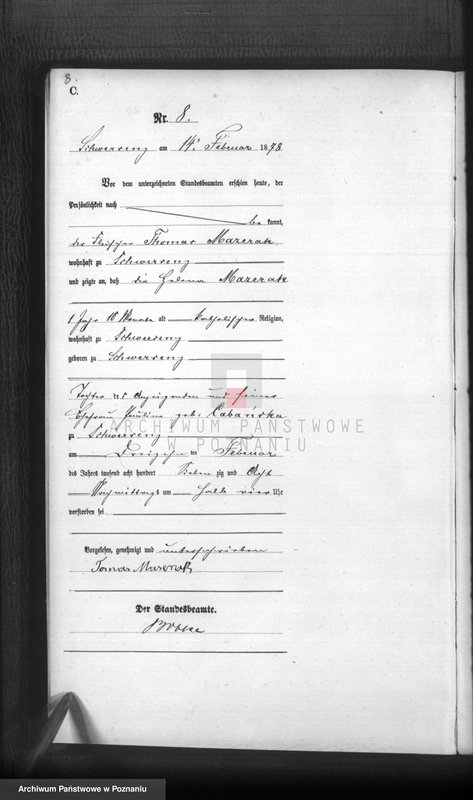 8.
C.
Nr. 8.
Schwersenz am 14ten Februar 1878.
Vor dem unterzeichneten Standesbeamten erschien heute, der
Persönlichkeit nach
be kannt,
der Fleischer Thomas Mazerak,
wohnhaft zu Schwersenz
und zeigte an, daß die Helena Mazerak
1 Jahr 10 Monate alt katholischer Religion,
wohnhaft zu Schwersenz
geboren zu Schwersenz
Tochter des Anzeigenden und seiner
Ehefrau Pauline geb. Cabanska
zu Schwersenz
am Dreizehnten Februar
des Jahres tausend acht hundert Sieben zig und Acht
Nachmittags um halb vier Uhr
verstorben sei
Vorgelesen, genehmigt und unterschrieben
Tomas Mazerak
Der Standesbeamte.
ARCHIWUM PAŃSTWOWE
W POZNANIU
Archiwum Państwowe w Poznaniu